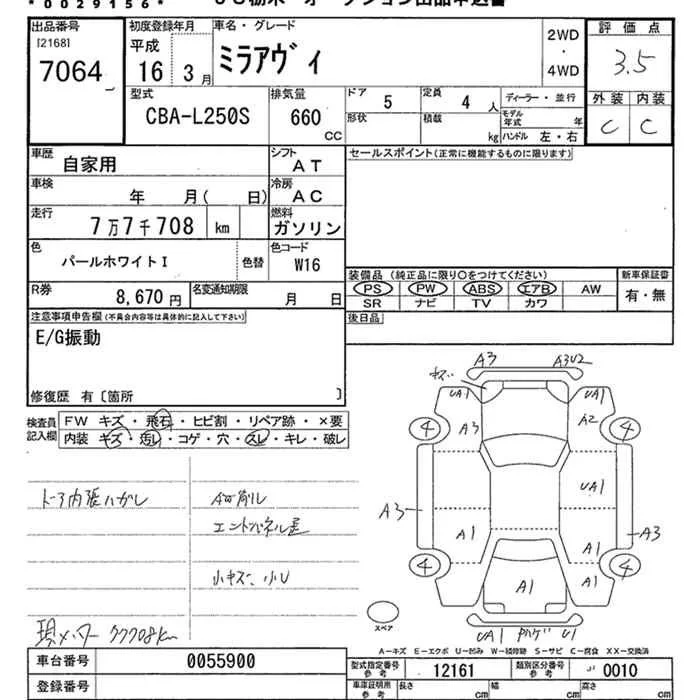 *0029156*
出品番号
[2168]
7064
初度登録年月
平成
16 3月
車名・グレード
ミラアヴィ
2WD
・
4WD
評価点
3.5
型式
CBA-L250S
排気量
660
CC
ドア 5
定員 4人
形状
積載 kg
ディーラー・並行
モデル年式 年
ハンドル 左・右
外装 内装
C C
車歴 自家用
シフト AT
車検 年 月( 日)
冷房 AC
走行 7万7千708 km
燃料 ガソリン
色 パールホワイトI
色替
色コード W16
R券 8,670円
名変通知期限 月 日
セールスポイント(正常に機能するものに限ります)
装備品 (純正品に限り○をつけてください)
新車保証書
PS PW ABS エアB AW
有・無
SR ナビ TV カワ
後日品
注意事項申告欄(不具合内容等は具体的に記入して下さい)
E/G振動
修復歴 有〔箇所 〕
検査員記入欄
FW キズ・飛石・ヒビ割・リペア跡・×要
内装 キズ・汚レ・コゲ・穴・スレ・キレ・破レ
ドア内張ハガレ
小キズ、小U
現メーター 77708km
A3 A3U2
キズ
UA1 UA1
A3 A2
4 4
UA1
A3 A3
A1 A1
4 4
A1 A1
UA1 U1
スペア
A-キズ E-エクボ U-凹み W-補修跡 S-サビ C-腐食 XX-交換済
車台番号 0055900
登録番号
型式指定番号 参考 12161
類別区分番号 参考 0010
車庫証明用 参考 長さ cm 幅 cm 高さ cm